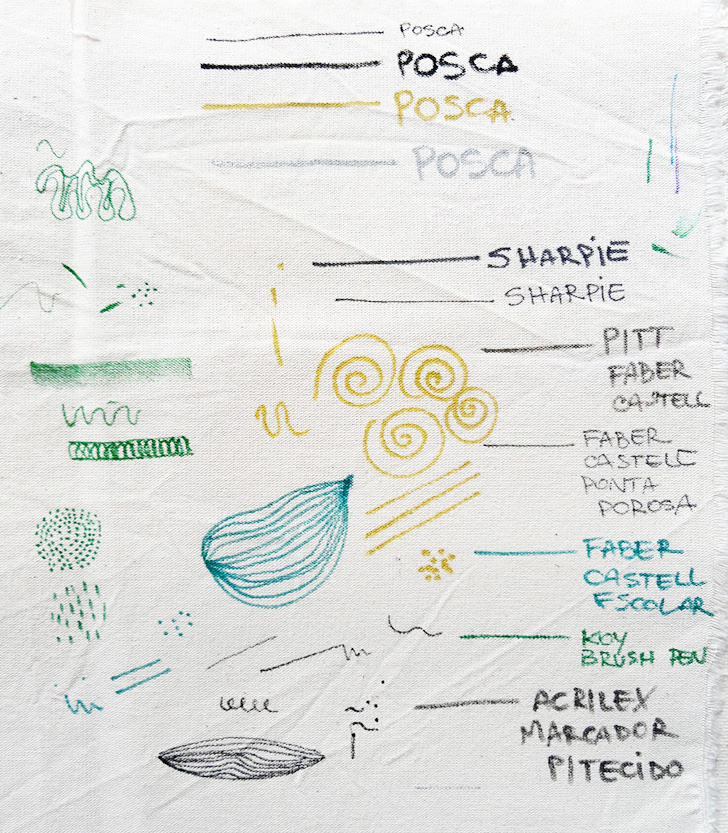 POSCA
POSCA
POSCA
POSCA
SHARPIE
SHARPIE
PITT
FABER
CASTELL
FABER
CASTELL
PONTA
POROSA
FABER
CASTELL
ESCOLAR
KOY
BRUSH PEN
ACRILEX
MARCADOR
P/TECIDO